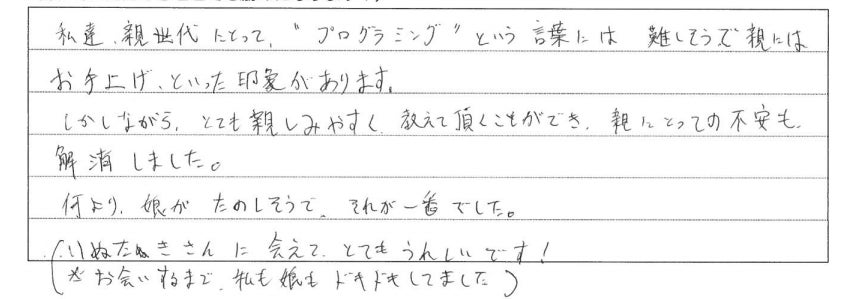 私達、親世代にとって、"プログラミング"という言葉には 難しそうで親には
お手上げ、といった印象があります。
しかしながら、とても親しみやすく、教えて頂くことができ、親にとっての不安も、
解消しました。
何より、娘が たのしそうで、それが一番でした。
(いぬたぬきさんに会えて、とてもうれしいです!
※お会いするまで、私も娘もドキドキしてました)